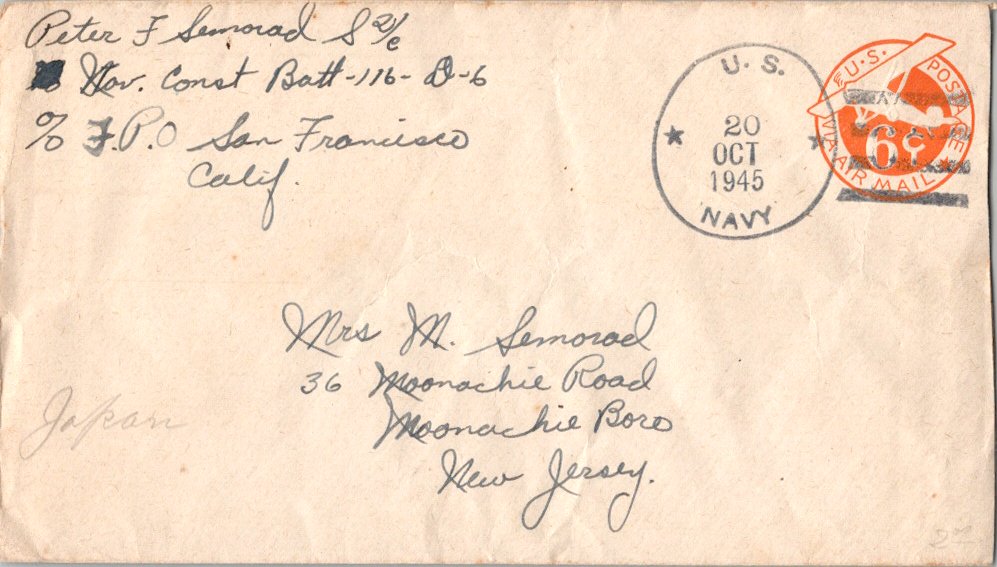 Peter F Semorad S 2/c
Nav. Const Batt-116-D-6
c/o F.P.O San Francisco
Calif.
U. S.
20
OCT
1945
NAVY
U.S. POSTAGE
6¢
VIA AIR MAIL
Mrs M. Semorad
36 Moonachie Road
Moonachie Boro
New Jersey.
Japan